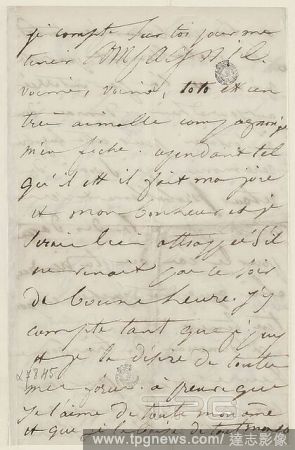 je compte sur toi pour me
tenir compagnie.
toto est un
très aimable compagnon je
m'en fiche. cependant tel
qu'il est il fait ma joie
et mon bonheur et je
serais bien attrapée s'il
ne venait pas ce soir
de bonne heure. j'y
compte tant que j'y
et je le désire de toutes
mes forces. à preuve que
je l'aime de toute mon âme
et que je le baise de tout mon
www.tpgnews.com / 達志影像
TPG